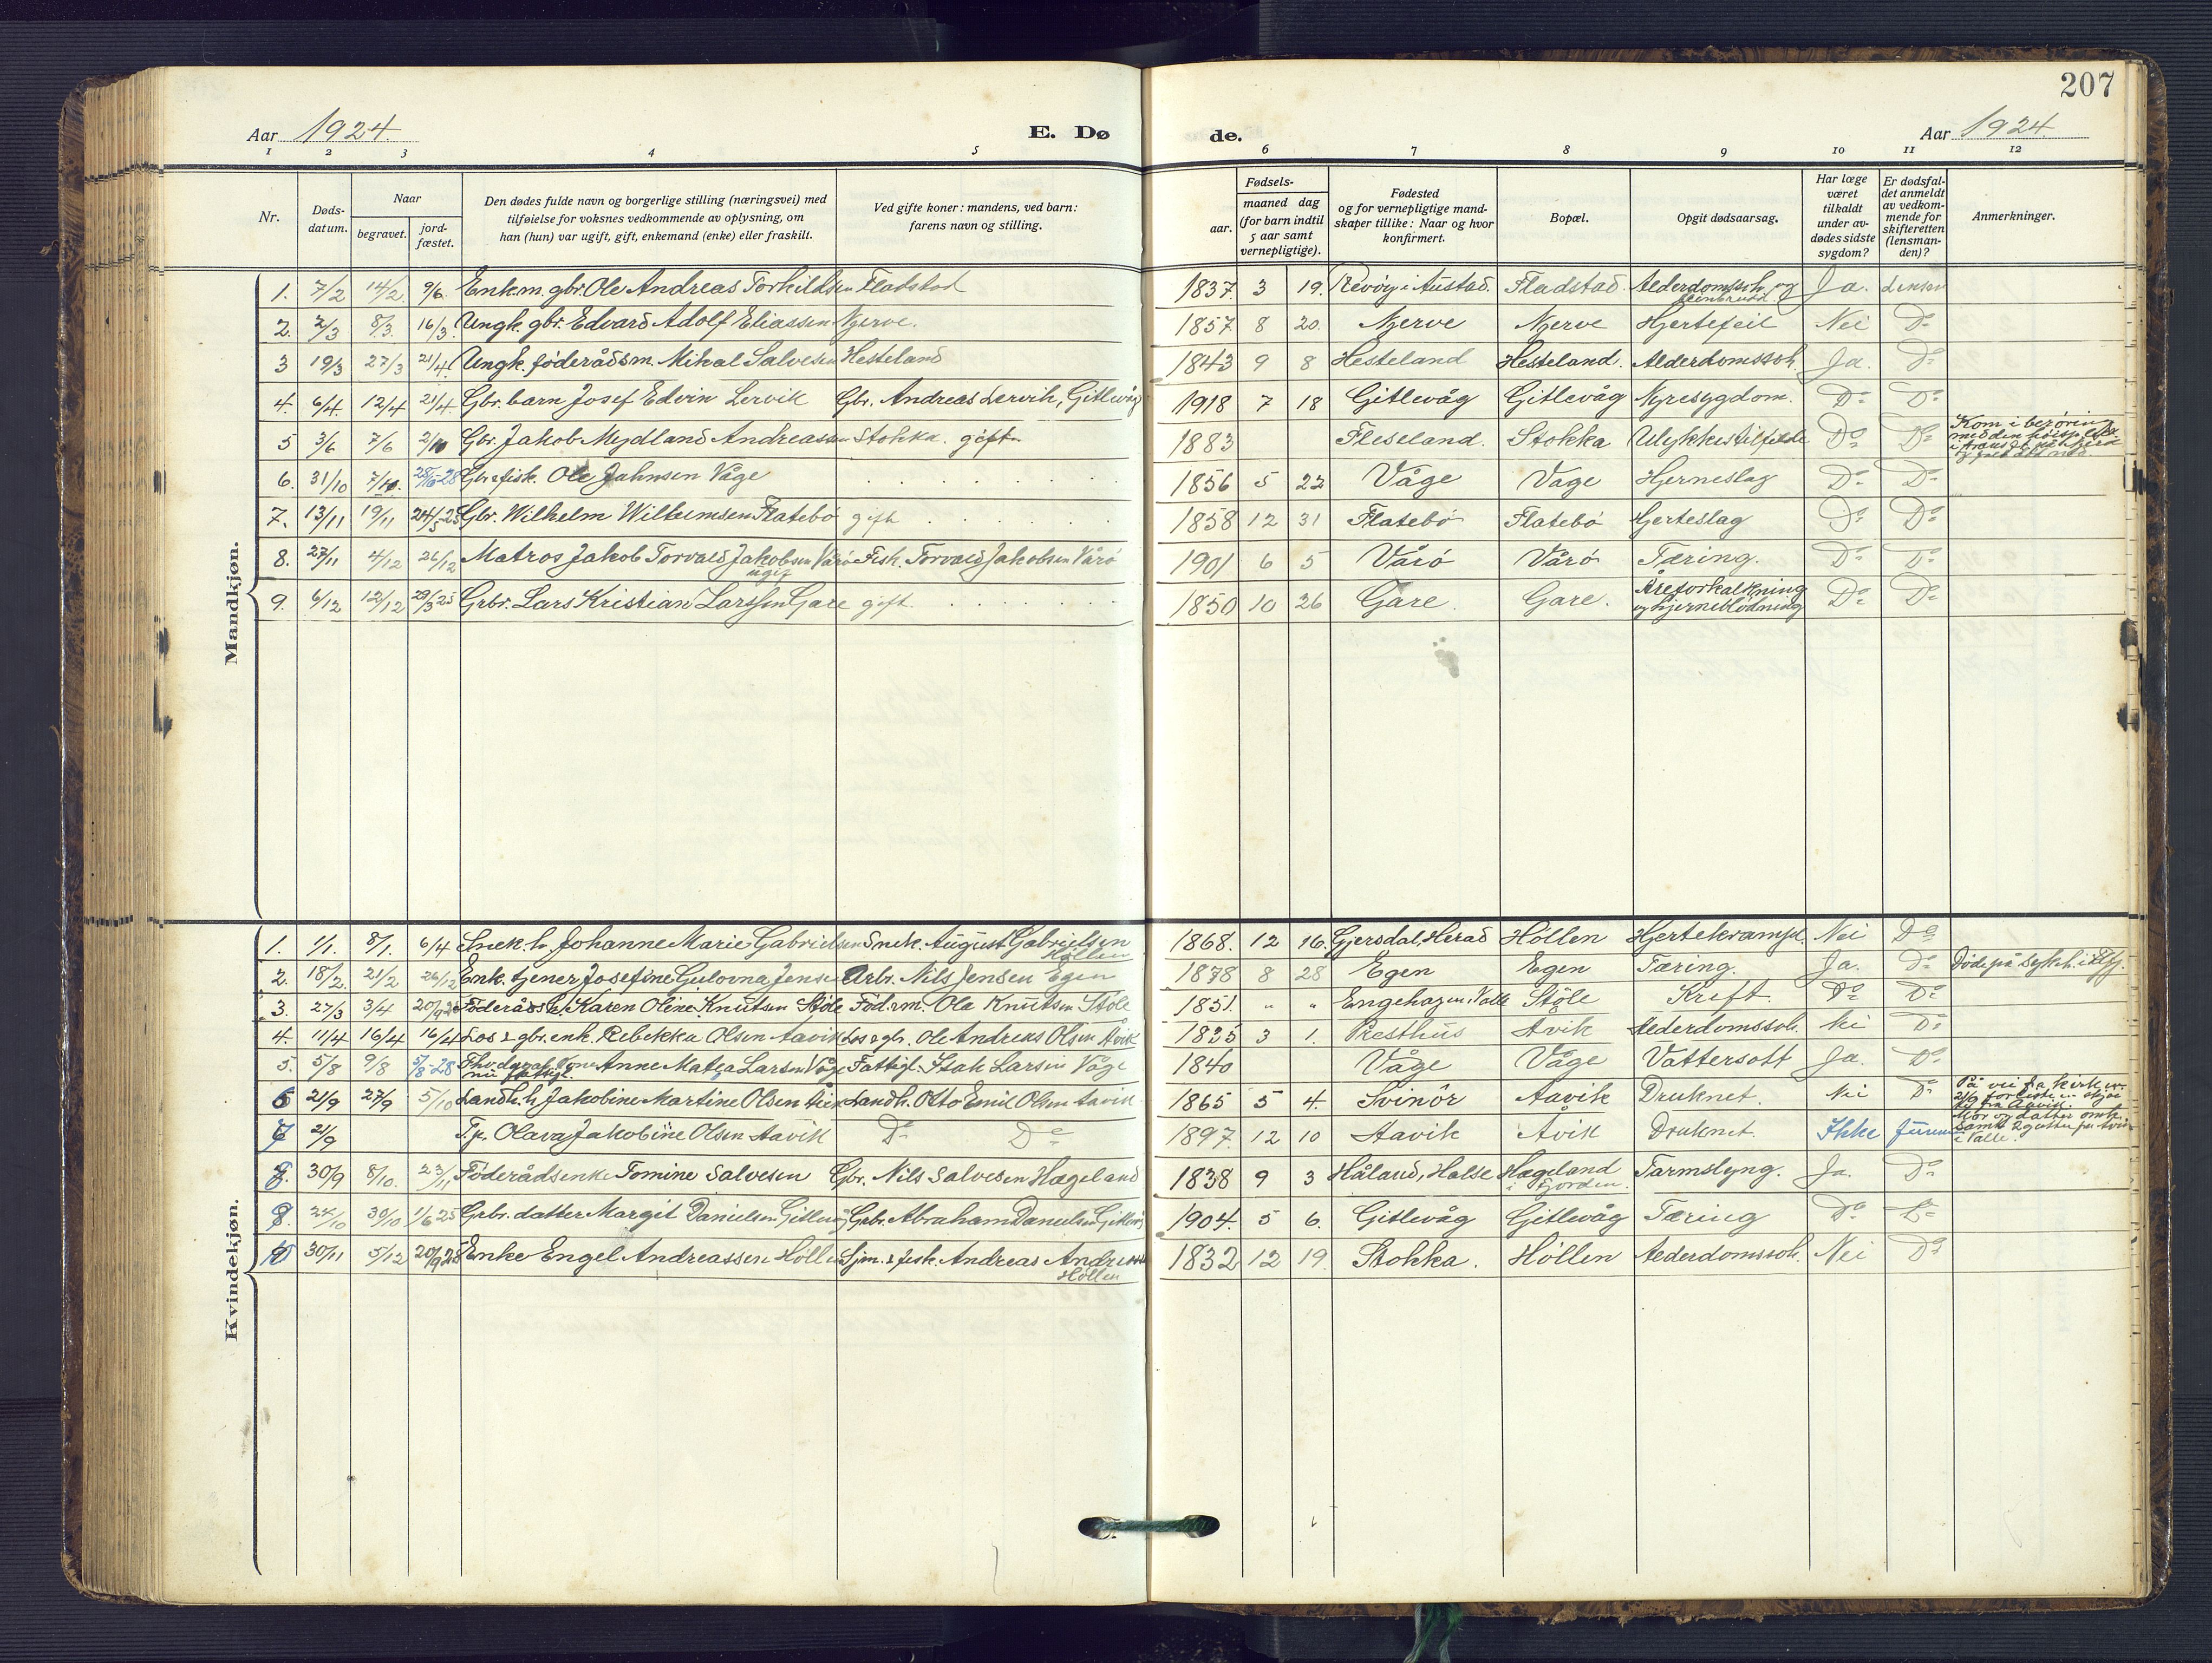 207
Aar 1924.
E. Dø
de.
Aar 1924
1 2 3 4 5 6 7 8 9 10 11 12
Nr.
Døds-
datum.
Naar
begravet.
jord-
fæstet.
Den dødes fulde navn og borgerlige stilling (næringsvei) med
tilføielse for voksnes vedkommende av oplysning, om
han (hun) var ugift, gift, enkemand (enke) eller fraskilt.
Ved gifte koner: mandens, ved barn:
farens navn og stilling.
Fødsels-
aar.
maaned dag
(for barn indtil
5 aar samt
vernepligtige).
Fødested
og for vernepligtige mand-
skaper tillike: Naar og hvor
konfirmert.
Bopæl.
Opgit dødsaarsag.
Har læge
været
tilkaldt
under av-
dødes sidste
sygdom?
Er dødsfal-
det anmeldt
av vedkom-
mende for
skifteretten
(lensman-
den)?
Anmerkninger.
Mandkjøn.
1. 7/2 14/2 9/6. Enkem. gbr. Ole Andreas Torkildsen Fladstad 1837 3 19. Revöy i Austad. Fladstad. Alderdomssch. og Ja.
2. 2/3 8/3. 16/3 Ungk. gbr. Edvard Adolf Eliassen Njerve. 1857 8 20. Njerve Njerve Hjertefeil Nei Do
3 19/3 27/3 21/4. Ungk. föderådsm. Mikal Salvesen Hesteland 1843 9 8 Hesteland Hesteland. Alderdomssch. Ja. Do
4. 6/4. 12/4 21/4 Gbr. barn Josef Edvin Lervik Gbr. Andreas Lervik, Gitlevåg 1918 7 18 Gitlevåg Gitlevåg Nyresygdom. Do Do
5 3/6 7/6 2/10 Gbr. Jakob Mydland Andreassen Stokka. gift 1883 Fleseland. Stokka Ulykkestilfelde Do Do Kom i berøring
6. 31/10 Gbr & fisk. Ole Jahnsen Våge 1856 5 22 Våge Våge Hjerneslag Do Do
7. 13/11 19/11 Gbr. Wilhelm Willumsen Flatebö gift 1858 12 31 Flatebö Flatebö Hjerteslag Do Do
8. 27/11 4/12 26/12 Matros Jakob Torvald Jakobsen Vårö Fisk. Torvald Jakobsen Vårö 1901 6 5 Vårö Vårö Tæring. Do Do
ugift
9. 6/12 12/12 29/3 25 Grbr. Lars Kristian Larssen Gare gift. 1850 10 26 Gare. Gare. Åreforkalkning Do Do
og hjerneblödning
Kvindekjøn.
1. 1/1. 8/1. 6/4 Snek. h. Johanne Marie Gabrielsen Snek. August Gabrielsen 1868. 12 16. Gjersdal, Herad Höllen Hjertekrampe. Nei Do
Höllen
2. 18/2. 21/2 26/12 Enk. tjener Josefine Gulovna Jensen Arbr. Nils Jensen Egen 1878 8 28 Egen Egen Tæring. Ja. Do Döde på sykeh. i
3. 27/3 3/4 Föderådsk. Karen Oline Knutsen Stöle Föd. m. Ola Knutsen Stöle 1851. " " Engehagen, Valle Stöle Kreft. Do Do
4. 11/4 16/4 16/4 Los & gbr. enk. Rebekka Olsen Aavik Los & gbr. Ole Andreas Olsen Avik 1835 3 1. Presthus Avik Alderdomssch. Nei Do
5. 5/8 9/8 5/8-28 Anne Matea Larsen Våge Fattigl. Isak Larsen Våge 1840 Våge Våge Vattersott Ja. Do
nu fattigl.
6 21/9 27/9 5/10 Landh. h Jakobine Martine Olsen Avik Landh. Otto Emil Olsen Aavik 1865 5 4. Svinör Aavik Druknet. Nei Do På vei fra kirken
7 21/9 T.p. Olava Jakobine Olsen Aavik Do Do 1897. 12 10 Aavik Åvik Druknet. Ikke funnen
i Valle.
8. 30/9 8/10. 23/11 Föderådsenke Tomine Salvesen Gbr. Nils Salvesen Hageland 1838 9 3 Håland, Halse Hageland Tarmslyng. Ja. Do
i Fjorden.
9. 24/10 30/10 1/6 25 Grbr. datter Margit Danielsen Gitlevåg Grbr. Abraham Danielsen Gitlevåg 1904. 5 6. Gitlevåg Gitlevåg Tæring Do Do
10 30/11 5/12 20/9 28 Enke Engel Andreassen Höllen Sjm. & fisk. Andreas Andreassen 1832 12 19. Stokka. Höllen Alderdomssch. Nei Do
Höllen